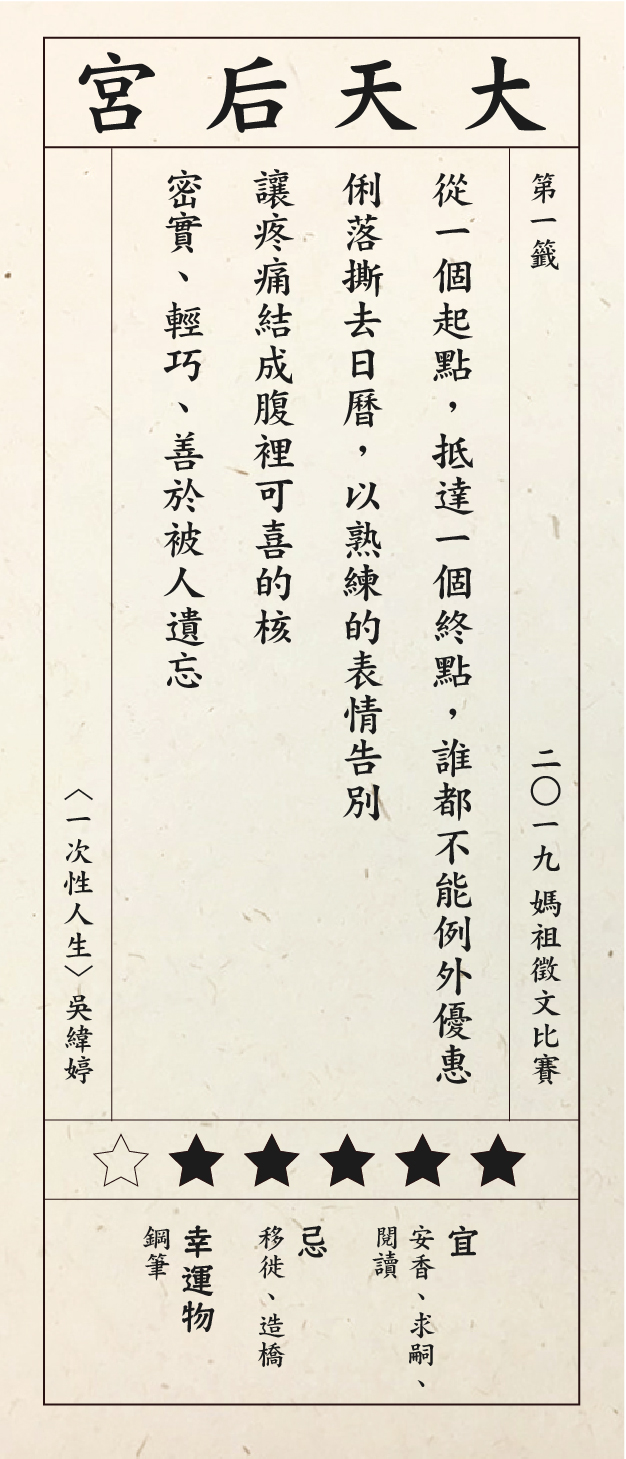 大天后宮
第一籤
二〇一九 媽祖徵文比賽
從一個起點，抵達一個終點，誰都不能例外優惠
俐落撕去日曆，以熟練的表情告別
讓疼痛結成腹裡可喜的核
密實、輕巧、善於被人遺忘
〈一次性人生〉吳緯婷
宜
安香、求嗣、
閱讀
忌
移徙、造橋
幸運物
鋼筆